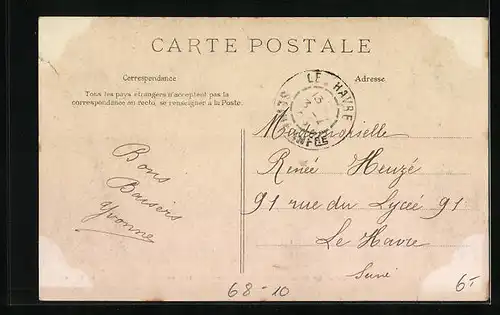 CARTE POSTALE
Correspondance
Tous les pays étrangers n'acceptent pas la
correspondance au recto, se renseigner à la Poste.
Adresse
LE HAVRE
Bons
Baisers
Yvonne
Mademoiselle
Renée Heuzé
91 rue du Lyceé 91
Le Havre
Seine
68-10
6-